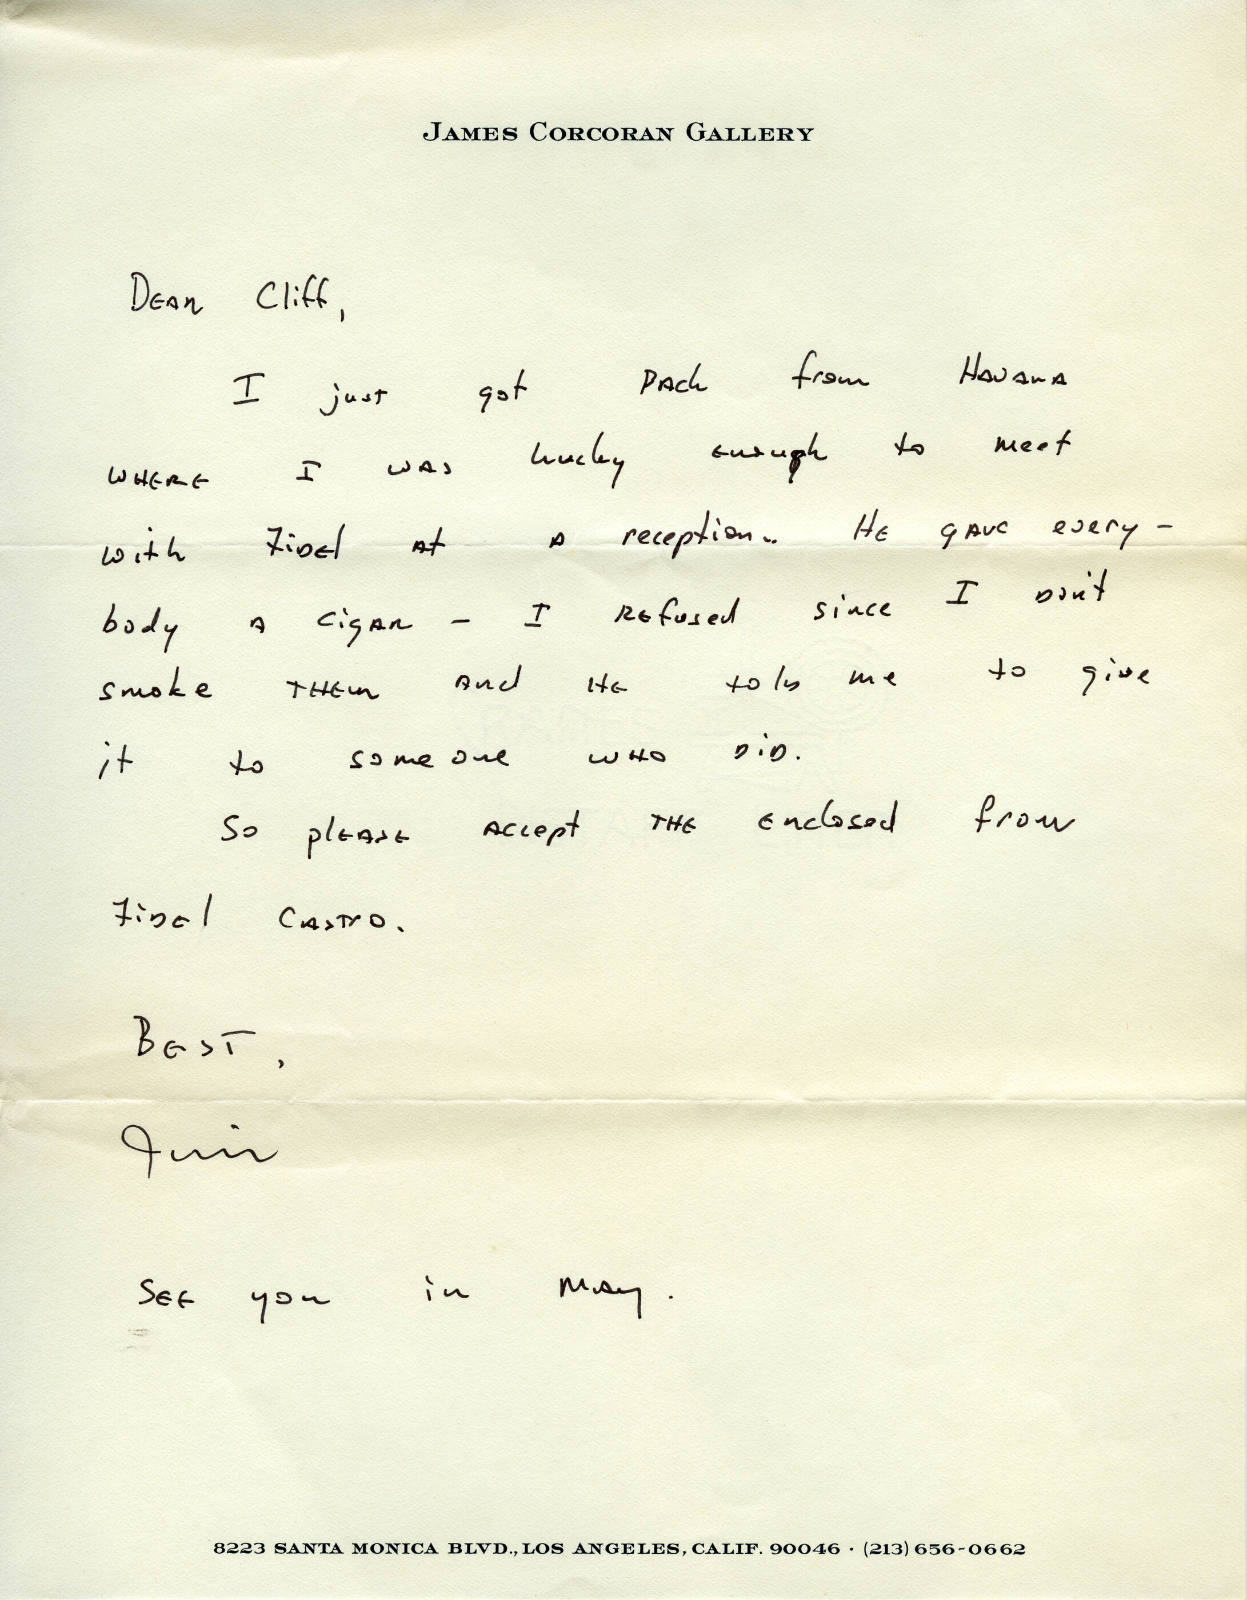 JAMES CORCORAN GALLERY
Dear Cliff,
I just got back from Havana
where I was lucky enough to meet
with Fidel at a reception.. He gave every-
body a cigar - I refused since I don't
smoke them and he told me to give
it to someone who did.
So please accept the enclosed from
Fidel Castro.
Best,
See you in May.
8223 SANTA MONICA BLVD., LOS ANGELES, CALIF. 90046 · (213) 656-0662